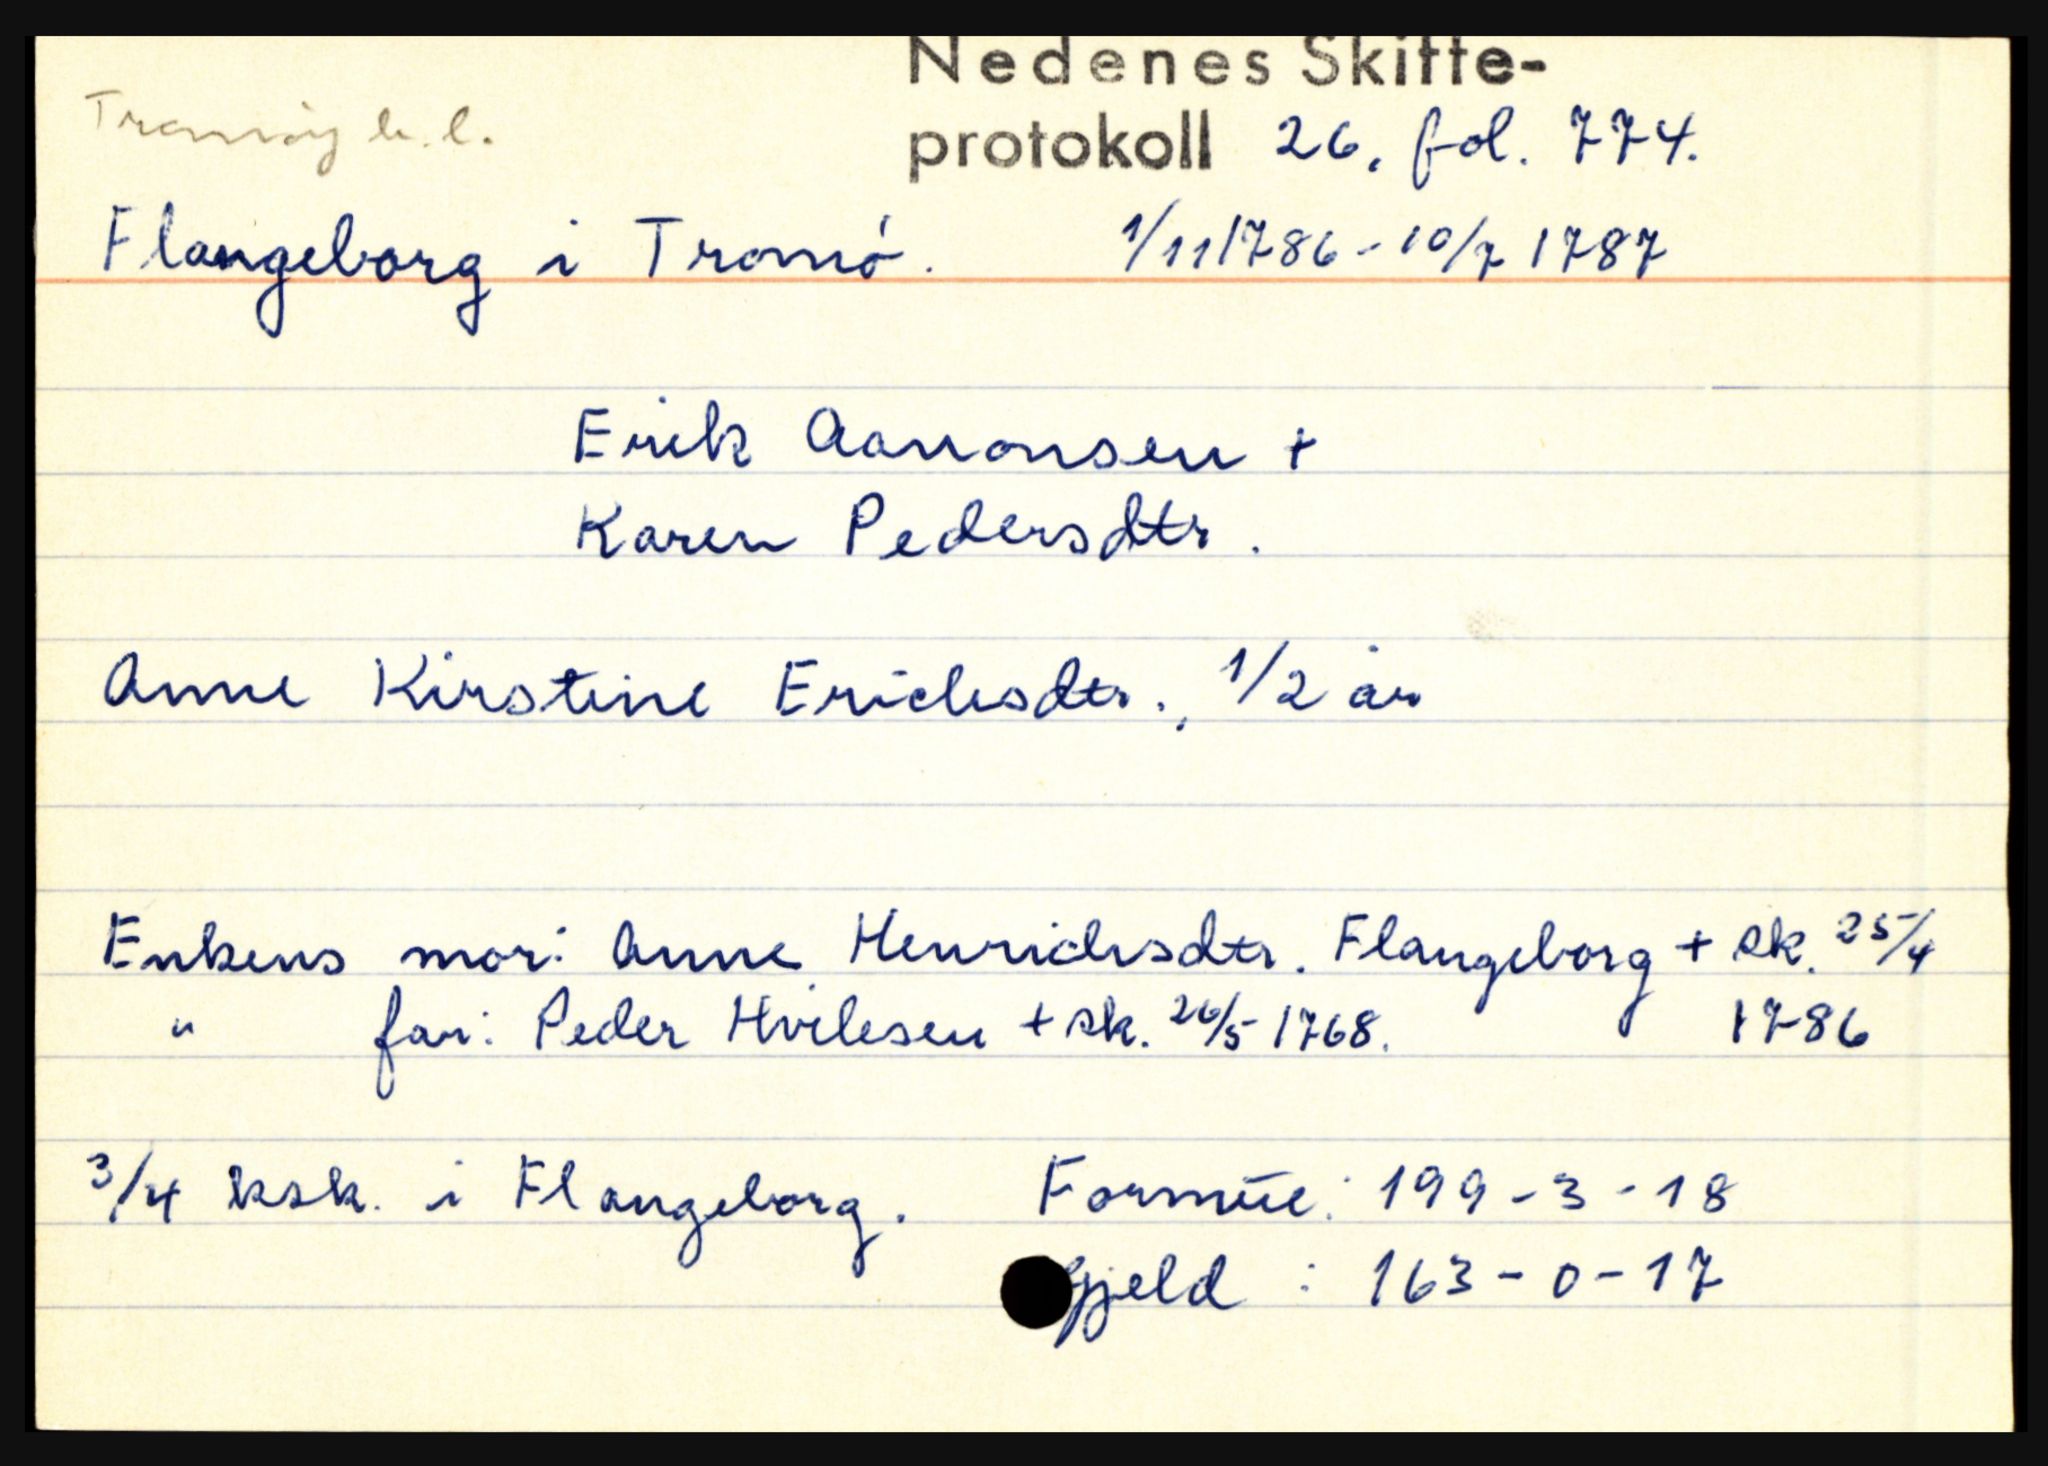 Nedenes Skifte-
Tromøy h.l.
protokoll 26, fol. 774.
Flangeborg i Tromø. 1/11 1786 - 10/7 1787
Erik Aanonsen +
Karen Pedersdtr.
Anne Kirstine Erichsdtr., 1/2 år
Enkens mor: Anne Henrichsdtr. Flangeborg + sk. 25/4
" far: Peder Hvilesen + sk. 26/5 1768. 1786
3/4 ksk. i Flangeborg. Formúe: 199 - 3 - 18
Gjeld : 163 - 0 - 17